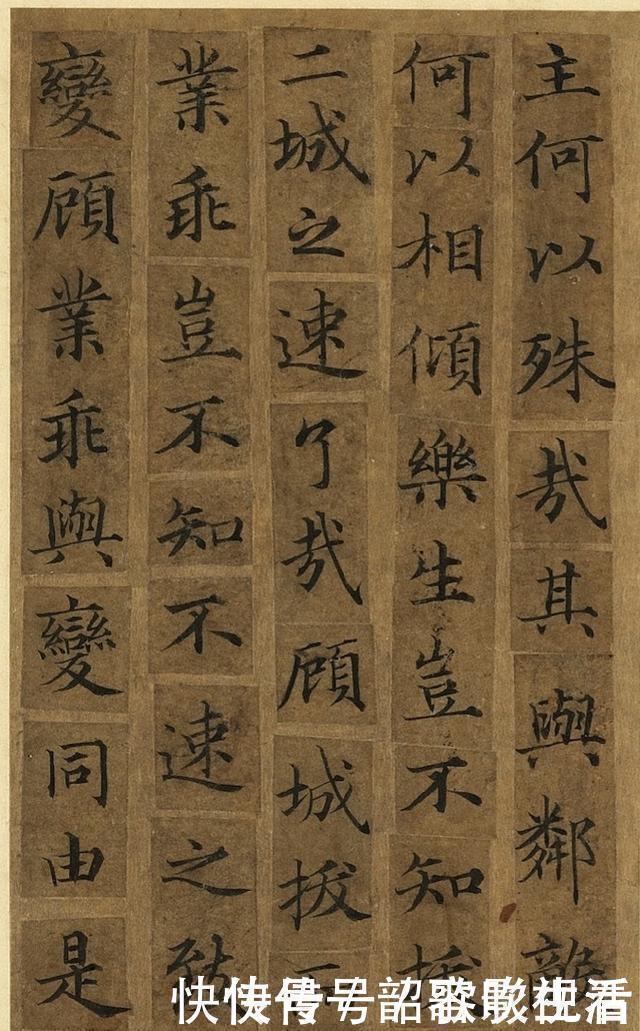 主何以殊哉其與鄰
何以相傾樂生豈不知拔
二城之速了哉顧城拔而
業乖豈不知不速之致
變顧業乖與變同由是